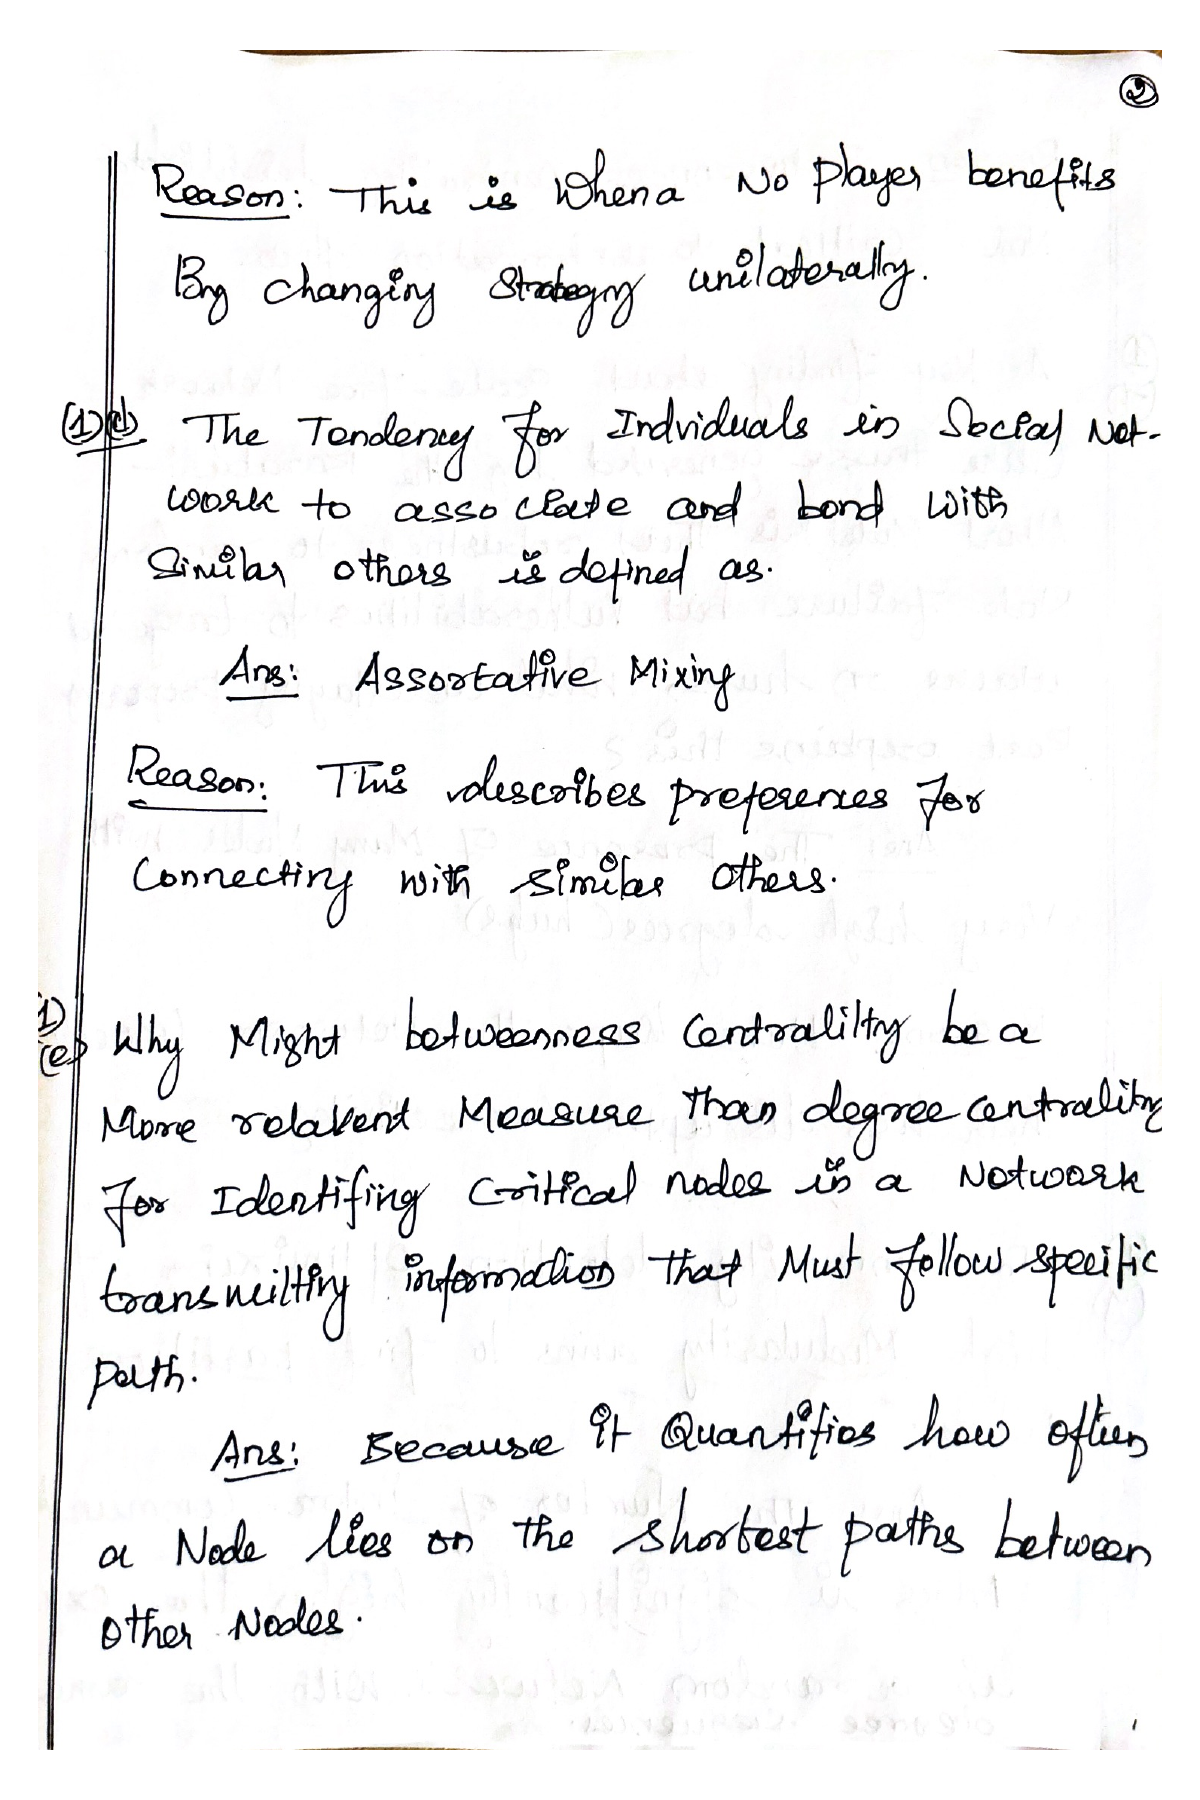 2
Reason: This is When a No Player benefits
By changing Strategy unilaterally.
(1)(d) The Tendency for Individuals in Social Net-
work to associate and bond with
Similar others is defined as.
Ans: Assortative Mixing
Reason: This describes preferences for
Connecting with similar others.
(1)
(e) Why Might betweenness Centralilty be a
More relavent Measure than degree centrality
for Identifing Critical nodes in a Network
transmitting information that Must follow specific
path.
Ans: Because it Quantifies how often
a Node lies on the shortest paths between
other Nodes.